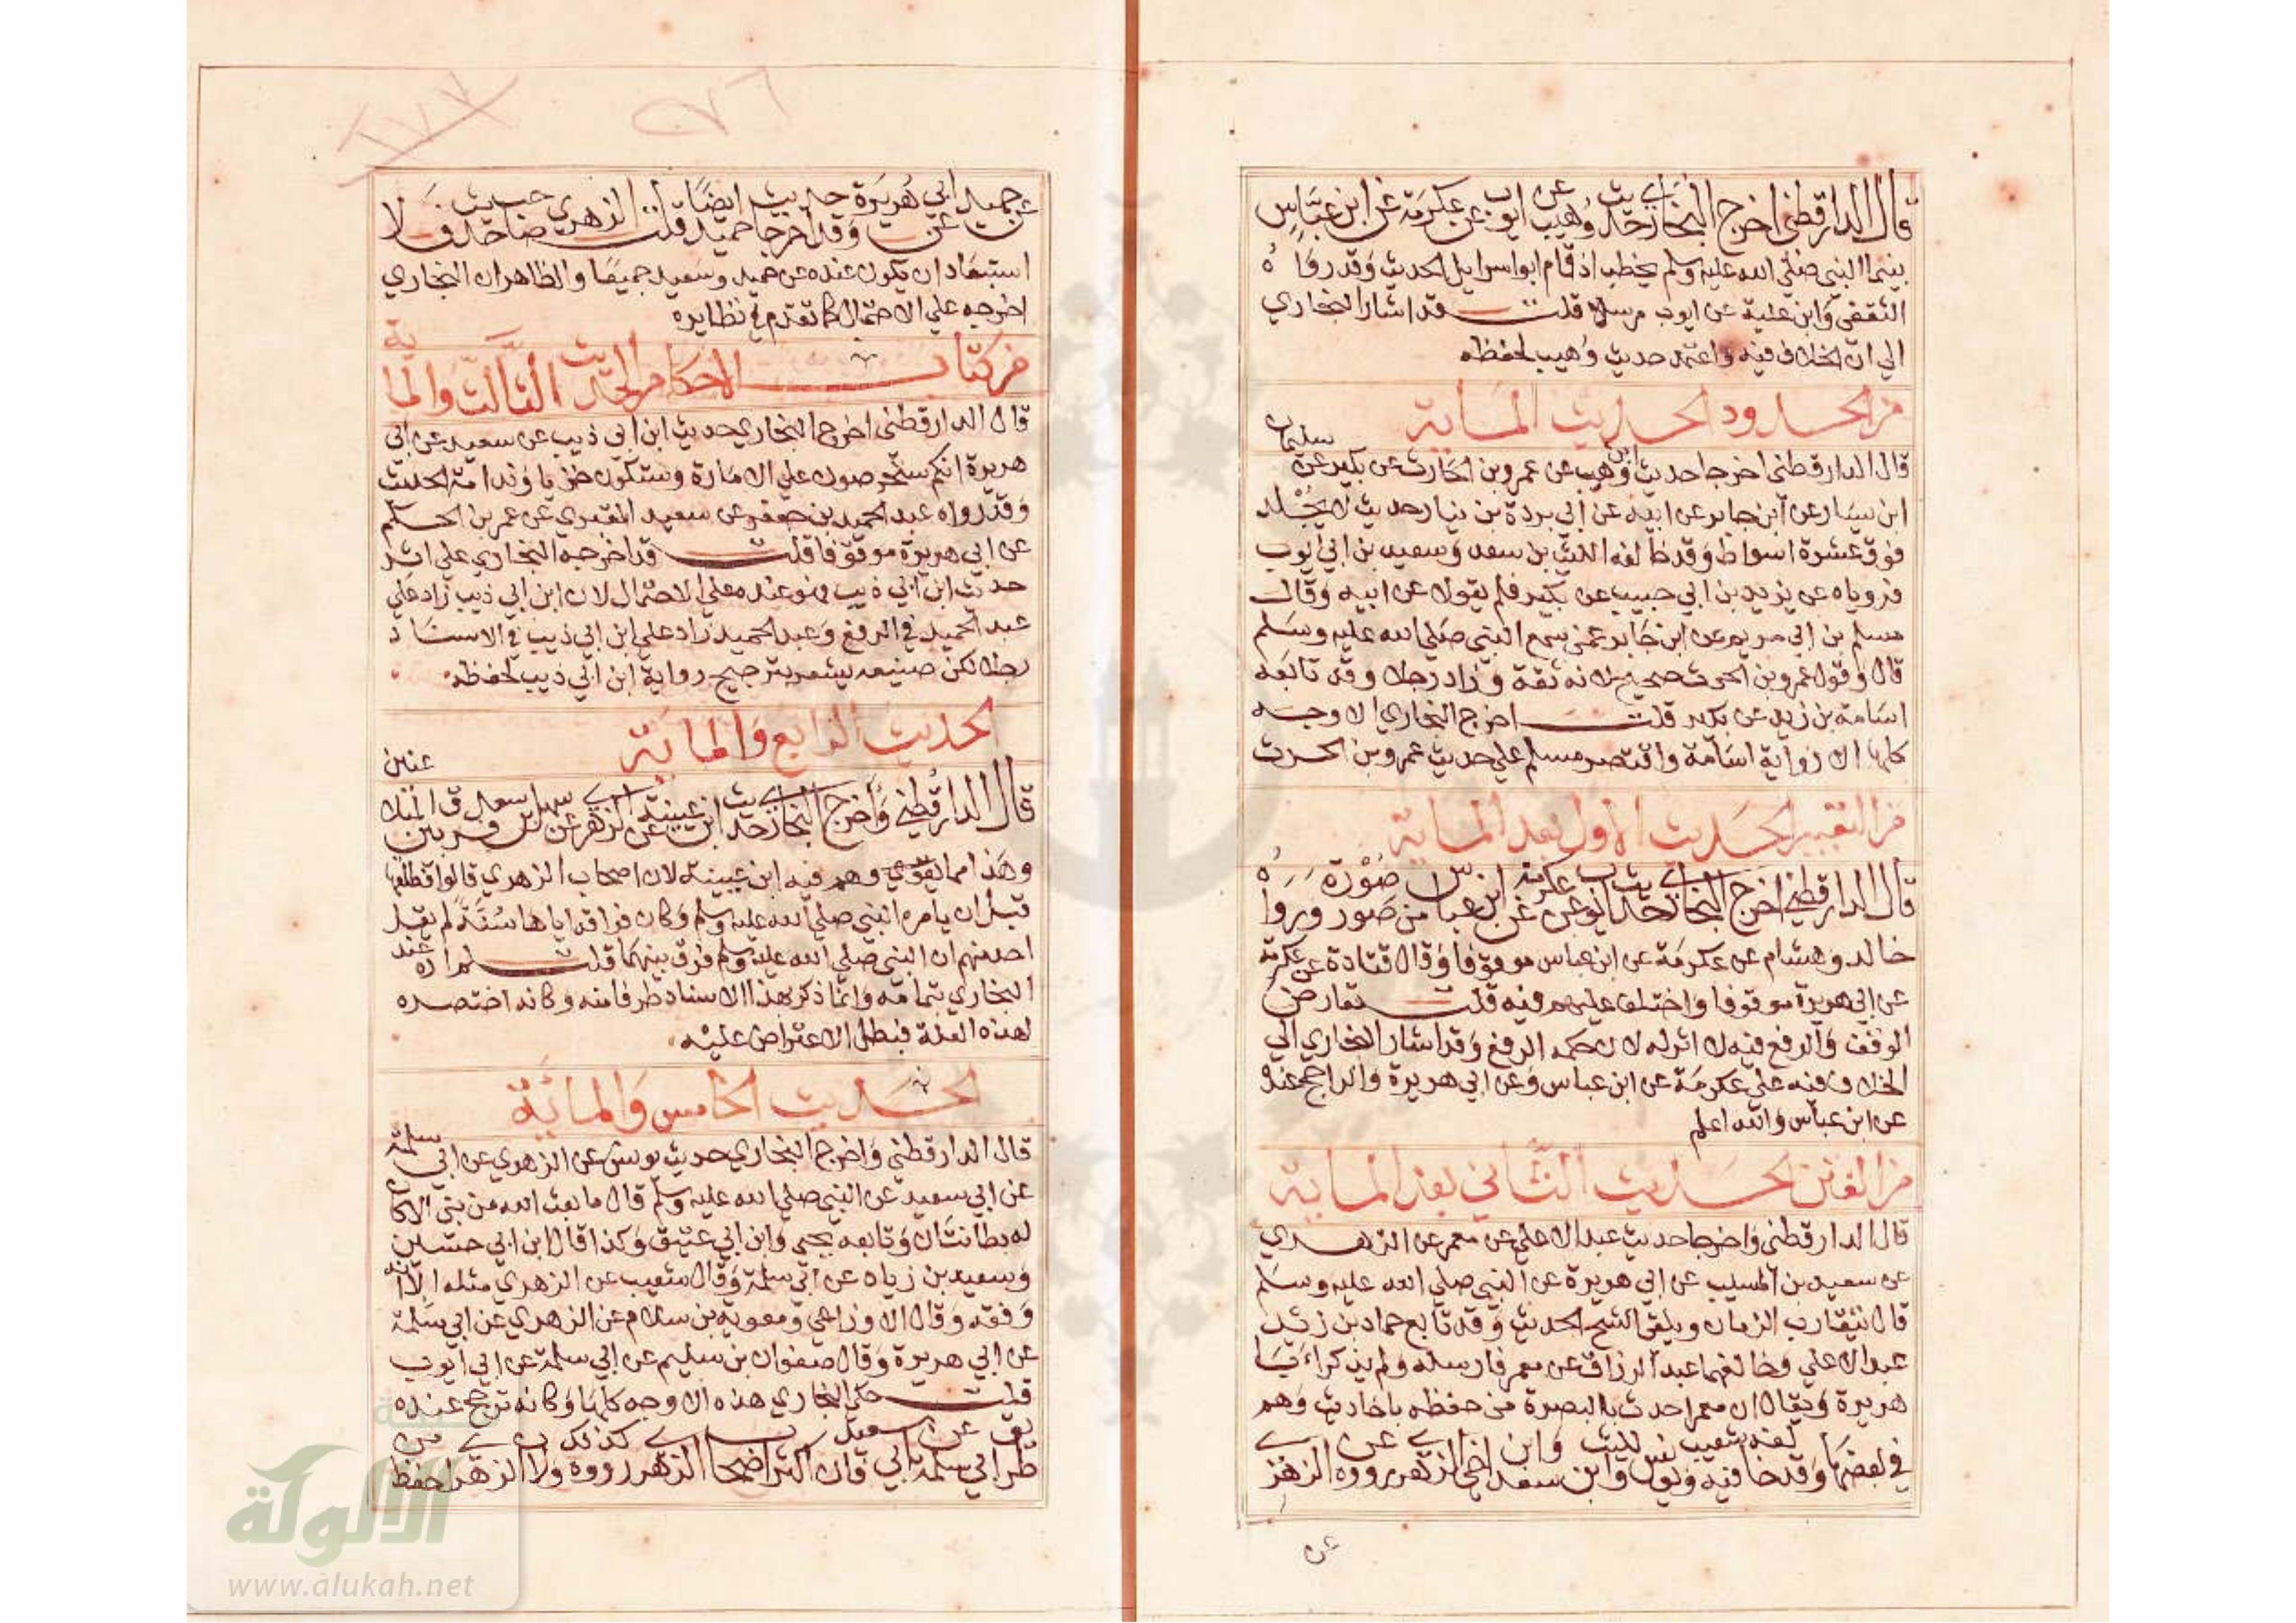 قال الدارقطني اخرج البخاري حديث وهيب عن ايوب عن عكرمة عن ابن عباس
بينما النبي صلي الله عليه وسلم يخطب اذ قام ابو اسرايل الحديث وقد رواه
الثقفي وابن علية عن ايوب مرسلا قلت قد اشار البخاري
الي ان الخلاف فيه واعتمد حديث وهيب لحفظه
من الحدود الحديث الماية
قال الدارقطني اخرجا حديث ابن وهيب عن عمرو بن الحارث عن بكير عن سليمان
ابن يسار عن ابن جابر عن ابيه عن ابي بردة بن نيار حديث لا يُجْلد
فوق عشرة اسواط وقد خالفه الليث بن سعد وسعيد بن ابي ايوب
فروياه عن يزيد بن ابي حبيب عن بكير فلم يقولا عن ابيه وقال
مسلم بن ابي مريم عن ابن جابر عمن سمع النبي صلي الله عليه وسلم
قال وقول عمرو بن الحرث صحيح لانه ثقة وزاد رجلا وقد تابعه
اسامة بن زيد عن بكير قلت اخرج البخاري الاوجه
كلها الا رواية اسامة واقتصر مسلم علي حديث عمرو بن الحرث
من التعبير الحديث الاول بعد الماية
قال الدارقطني اخرج البخاري حديث ايوب عن عكرمة عن ابن عباس من صور صُوْرة ورواه
خالد وهشام عن عكرمة عن ابن عباس موقوفا وقال قتادة عن عكرمة
عن ابي هريرة موقوفا واختلف عليهم فيه قلت تعارض
الوقف والرفع فيه لا اثر له لان حكمه الرفع وقد اشار البخاري الي
الخلاف فيه علي عكرمة عن ابن عباس وعن ابي هريرة والراجح عنده
عن ابن عباس والله اعلم
من الفتن الحديث الثاني بعد الماية
قال الدارقطني واخرجا حديث عبد الاعلي عن معمر عن الزهري
عن سعيد بن المسيب عن ابي هريرة عن النبي صلي الله عليه وسلم
قال يتقارب الزمان ويلقي الشح الحديث وقد تابع حماد بن زيد
عبد الاعلي وخالفهما عبد الرزاق عن معمر فارسله ولم يذكرا ابا
هريرة ويقال ان معمرا حدث بالبصرة من حفظه باحاديث وهم
في بعضها وقد خالفه فيه شعيب ويونس والليث بن سعد وابن اخي الزهري رووه عن الزهري
عن
عن حميد عن ابي هريرة وقد اخرجا حديث حميد ايضا قلت الزهري صاحب حديث فلا
استبعاد ان يكون عنده عن حميد وسعيد جميعا والظاهر ان البخاري
اخرجه علي الاحتمال كما تقدم في نظايره
من كتاب الاحكام الحديث الثالث والماية
قال الدارقطني اخرج البخاري حديث ابن ابي ذيب عن سعيد عن ابي
هريرة انكم ستحرصون علي الامارة وستكون خزيا وندامة الحديث
وقد رواه عبد الحميد بن جعفر عن سعيد المقبري عن عمر بن الحكم
عن ابي هريرة موقوفا قلت قد اخرجه البخاري علي اثر
حديث ابن ابي ذيب فهو عنده علي الاحتمال لان ابن ابي ذيب زاد علي
عبد الحميد في الرفع وعبد الحميد زاد علي ابن ابي ذيب في الاسناد
رجلا لكن صنيعه يشعر بترجيح رواية ابن ابي ذيب لحفظه
الحديث الرابع والماية
قال الدارقطني واخرج البخاري حديث ابن عيينة عن الزهري عن سهل بن سعد فرق بين المتلاعنين
وهذا مما يقوي وهم فيه ابن عيينة لان اصحاب الزهري قالوا فطلقها
قبل ان يامره النبي صلي الله عليه وسلم وكان فراقه اياها سُنَّةً لم يقل
احد منهم ان النبي صلي الله عليه وسلم فرق بينهما قلت لم اره عند
البخاري بتمامه وانما ذكر بهذا الاسناد طرفا منه وكانه اختصره
لهذه العلة فبطل الاعتراض عليه
الحديث الخامس والمائة
قال الدارقطني واخرج البخاري حديث يونس عن الزهري عن ابي سلمة
عن ابي سعيد عن النبي صلي الله عليه وسلم قال ما بعث الله من نبي الا كان
له بطانتان وتابعه يحيي وابن ابي عتيق وكذا قال ابن ابي حسين
وسعيد بن زياد عن ابي سلمة وقال شعيب عن الزهري مثله الا انه
وقفه وقال الاوزاعي ومعوية بن سلام عن الزهري عن ابي سلمة
عن ابي هريرة وقال صفوان بن سليم عن ابي سلمة عن ابي ايوب
قلت حكي البخاري هذه الاوجه كلها وكانه ترجح عنده
طريق ابي سلمة عن ابي سعيد فان اكثر اصحاب الزهري رووه كذلك ولان الزهري احفظ من
الالوكة
www.alukah.net